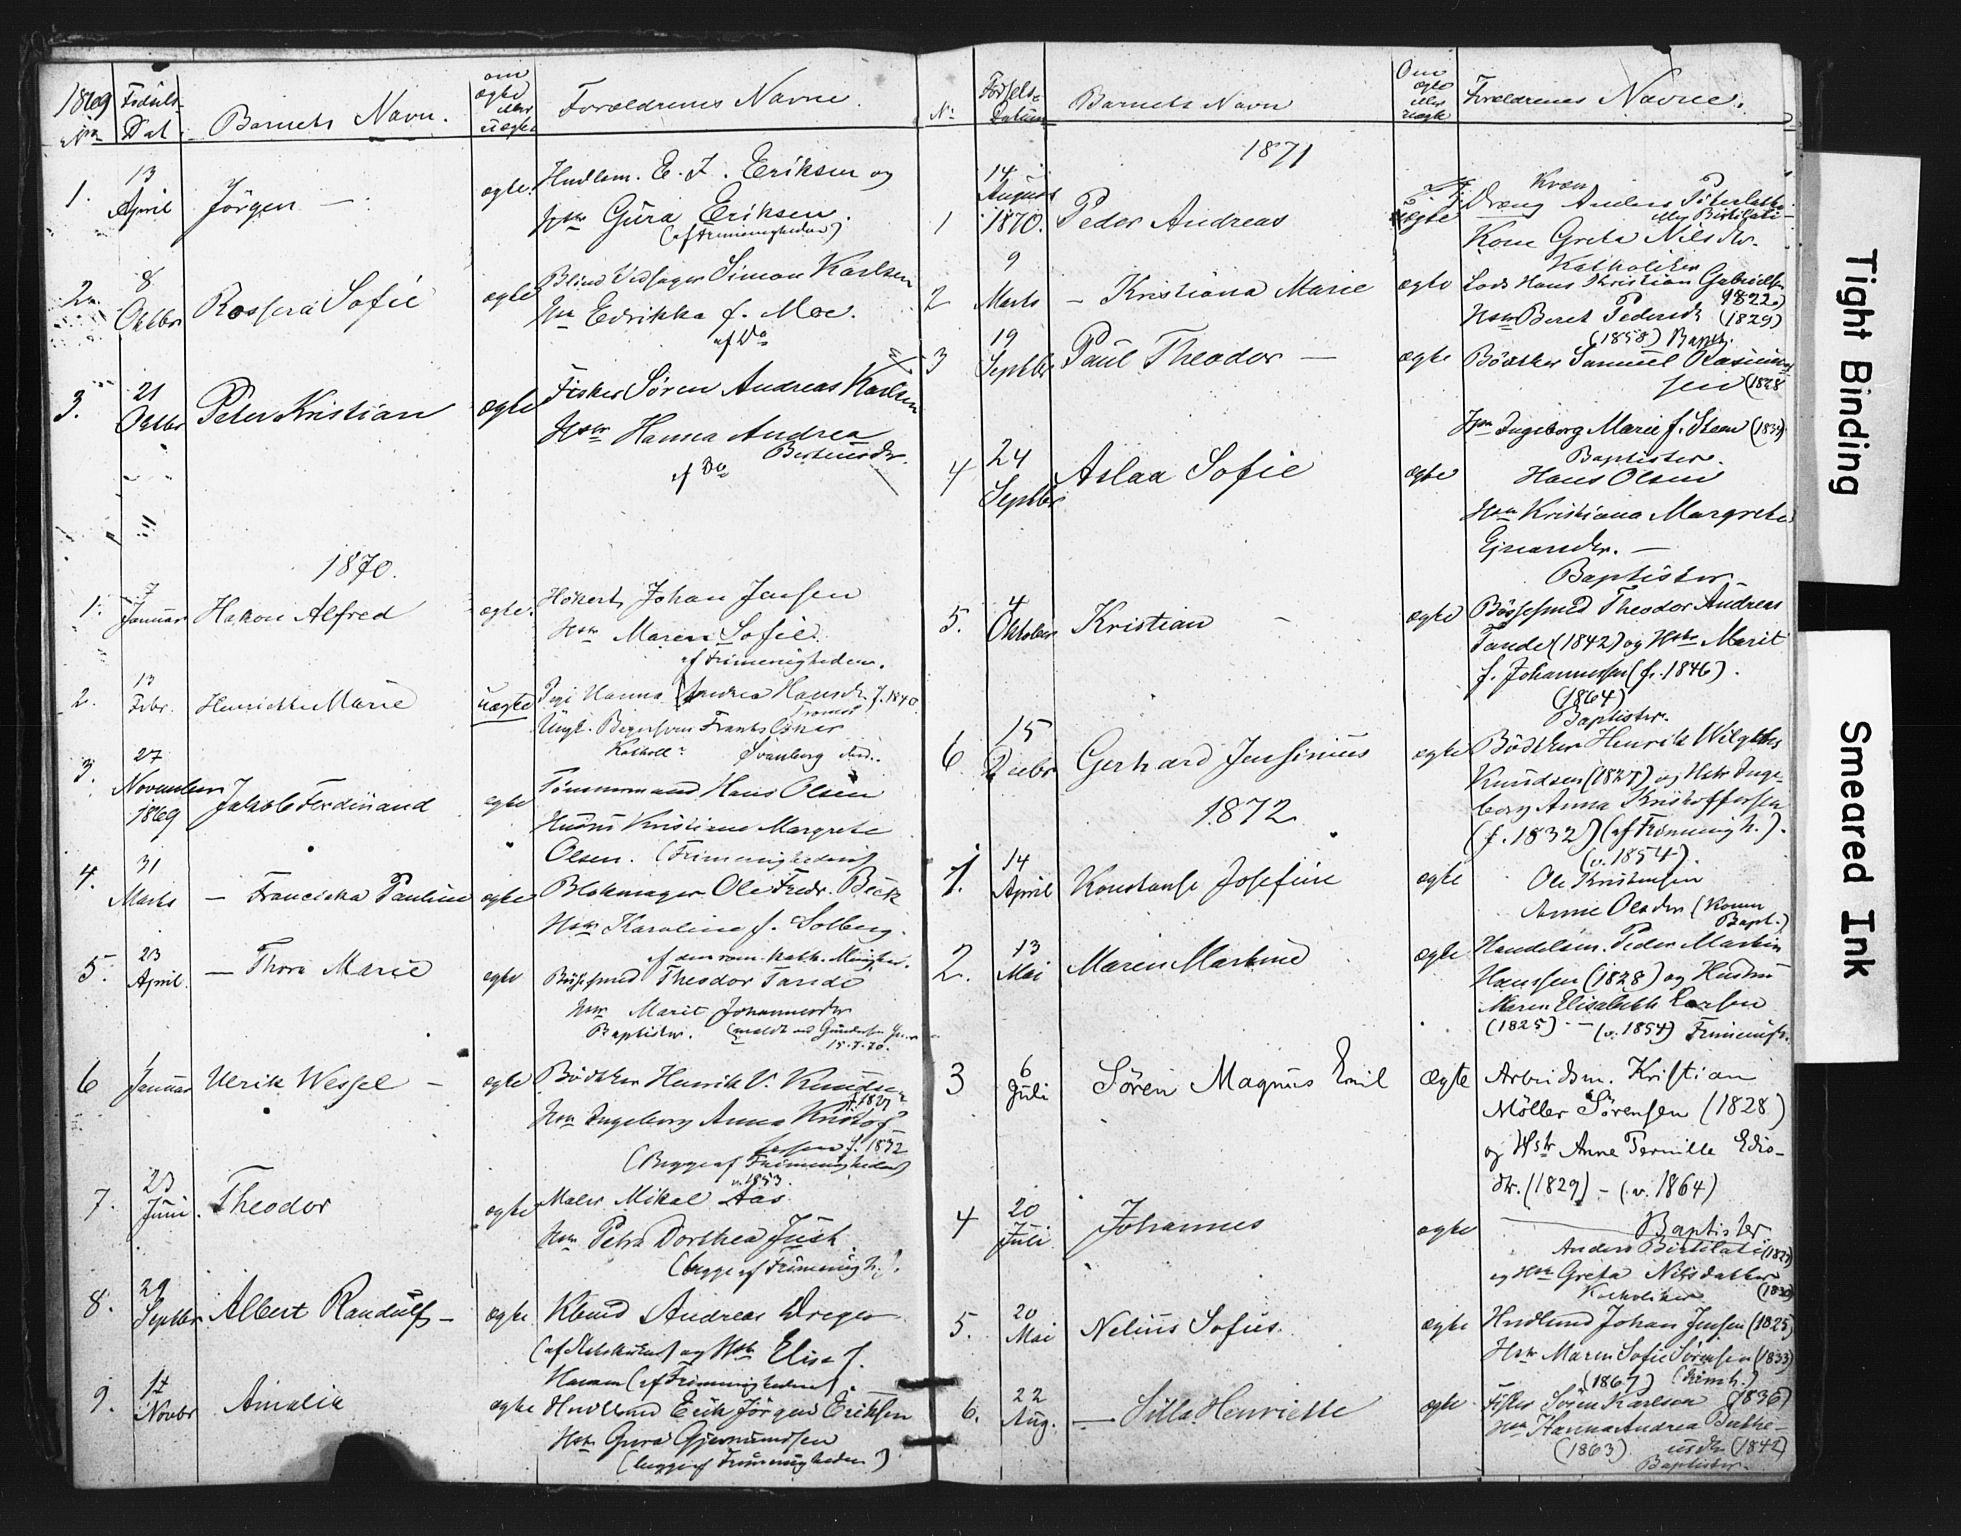 1869
No
Fødsels-
Dat.
Barnets Navn.
om
ægte
eller
uægte
Forældrenes Navne.
1.
13
April
Jörgen —
ægte.
Hndlsm. E. J. Eriksen og
Hstr Gura Eriksen.
(af Frimenigheden)
2.
8
Oktbr
Rossera Sofie
ægte
Blind Simon Karlsen
Hst Edrikka f. Moe.
af Do
3.
21
Oktbr
Peter Kristian
ægte
Fisker Søren Andreas Karlsen
Hstr Hanna Andrea
Berteusdr.
af Do
1870.
1.
7
Januar
Hakon Alfred
ægte.
Høkert, Johan Jensen
Hstr Maren Sofie.
af Frimenigheden.
2.
13
Febr.
Henriette Marie
uægte
Pige Hanna Andrea Hansdr. f. 1840.
Tromsø
Ungk. Frants Oskar
Katholl: Svanberg
3.
27
November
1869
Jakob Ferdinand
ægte
Tømmermand Hans Olsen
Hustru Kristiane Margrete
Olsen. (Frimenigheden)
4.
31
Marts
— Franciska Pauline
ægte
Blokmager Ole Fredr. Beck
Hstr Karoline f. Solberg.
af den rom. kath. Menighed.
5.
23
April.
— Thora Marie
ægte
Bøssesmed Theodor Tande
Hstr Marit Johannesdr
Baptister. (meldt ved Gundersen
15.7.70.
6
Januar
Ulrik Wessel —
ægte
Bödker Henrik V. Knudsen
f. 1827
Hstr Ingeborg Anna Kristof-
fersen f. 1832
(Begge af Frimenigheden)
v. 1853.
7.
23
Juni.
Theodor
ægte
Maler Mikal Aas
Hstr Petra Dorthea Just
(begge af Frimenigh.).
8.
29
Septbr
Albert Randulf —
ægte
Kbmd Andreas Dreyer
(af Statskirken) og Hstr Elise f.
(af Frimenigheden).
9.
14
Novbr
Amalie
ægte
Hndlsmd Erik Jörgen Eriksen
Hstr Gura Gjermundsen
(begge af Frimenigheden)
No
Fødsels-
Datum
Barnets Navn
Om
ægte
eller
uægte
Forældrenes Navne.
1871
1
14
August
1870.
Peder Andreas
ægte
Kvæn
Dreng Anders Piterlatti
eller Bertilati —
Kone Greta Nilsdtr.
Katholiker
2
9
Marts
— Kristiana Marie
ægte
Lods Hans Kristian Gabrielsen
(1822)
Hstr Beret Pedersdr (1829)
(1858) Bapt.
3
19
Septbr
Paul Theodor —
ægte
Bödker Samuel Rasmus-
sen (1828
Hstr Ingeborg Marie f. Steen (1833)
Baptister.
4
24
Septbr
Aslaa Sofie
ægte
Hans Olsen
Hstr Kristiana Margrete
Ejnarsdr. —
Baptister —
5.
4
Oktober
Kristian —
ægte
Bössesmed Theodor Andreas
Tande (1842) og Hstr Marit
f. Johannessen (f. 1846).
(1864)
Baptister.
6
15
Decbr
Gerhard Jensinius
ægte
Bödker Henrik Wilhelm
Knudsen (1827) og Hstr Inge-
borg Anna Kristoffersen
(f. 1832) (af Frimenigh.).
(v. 1854).
1872
1.
14
April
Konstanse Josefine
ægte
Ole Kristensen
Anne Olsdtr (Konen
Bapt.)
2.
13
Mai
Maren Martine
ægte
Handelsm. Peder Martin
Hanssen (1828) og Hustru
Maren Elisabeth Larsen
(1825) — (v. 1854) Frimenigh.
3
6
Juli
Sören Magnus Emil
ægte
Arbeidsm. Kristian
Möller Sörensen (1828)
og Hstr Anne Pernille Edis-
dtr. (1829) — (v. 1864)
Baptister
4
20
Juli
Johannes
ægte
Anders Bertilati (1827)
og Hstr Greta Nilsdatter
Katholiker (1830)
5.
20
Mai
Nelius Sofus.
ægte
Hndlsmd Johan Jensen (1825)
Hstr Maren Sofie Sörensen (1833)
(1867) (Frimh.)
6.
22
Aug.
— Silla Henriette
ægte
Fisker Sören Karlsen (1836)
Hstr Hanna Andrea Berthe-
(1863) usdtr (1842)
Baptister —
Tight Binding
Smeared Ink